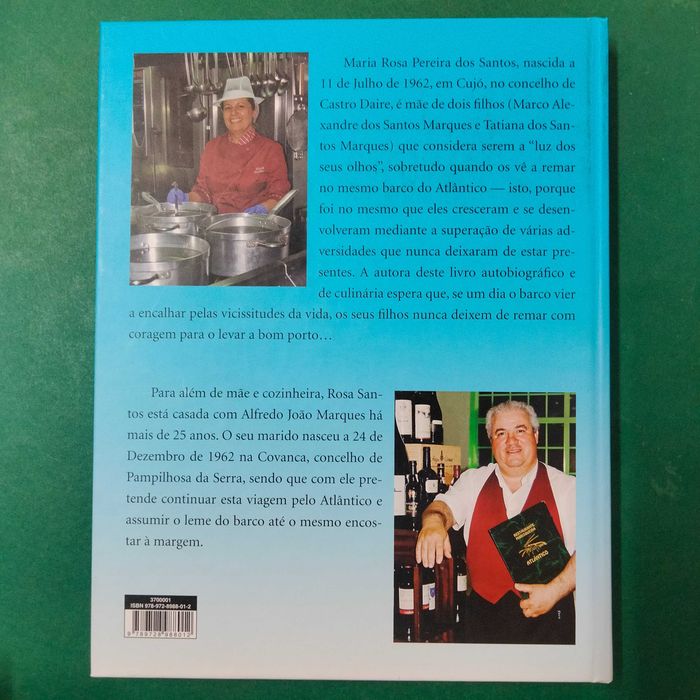 Maria Rosa Pereira dos Santos, nascida a
11 de Julho de 1962, em Cujó, no concelho de
Castro Daire, é mãe de dois filhos (Marco Ale-
xandre dos Santos Marques e Tatiana dos San-
tos Marques) que considera serem a “luz dos
seus olhos”, sobretudo quando os vê a remar
no mesmo barco do Atlântico — isto, porque
foi no mesmo que eles cresceram e se desen-
volveram mediante a superação de várias ad-
versidades que nunca deixaram de estar pre-
sentes. A autora deste livro autobiográfico e
de culinária espera que, se um dia o barco vier
a encalhar pelas vicissitudes da vida, os seus filhos nunca deixem de remar com
coragem para o levar a bom porto…
Para além de mãe e cozinheira, Rosa San-
tos está casada com Alfredo João Marques há
mais de 25 anos. O seu marido nasceu a 24 de
Dezembro de 1962 na Covanca, concelho de
Pampilhosa da Serra, sendo que com ele pre-
tende continuar esta viagem pelo Atlântico e
assumir o leme do barco até o mesmo encos-
tar à margem.
ATLÂNTICO
3700001
ISBN 978-972-8988-01-2
9 789728 988012